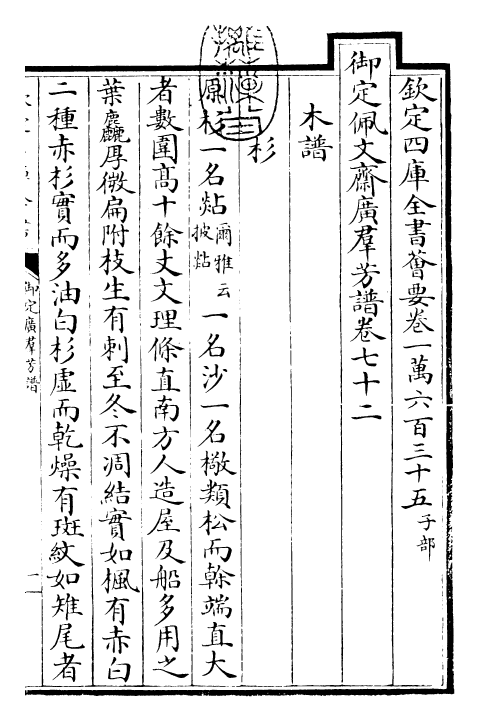 欽定四庫全書薈要卷一萬六百三十五子部
御定佩文齋廣羣芳譜卷七十二
木譜
杉
原杉一名煔爾雅云披煔一名沙一名樧類松而榦端直大
者數圍髙十餘丈文理條直南方人造屋及船多用之
葉麤厚微扁附枝生有刺至冬不凋結實如楓有赤白
二種赤杉實而多油白杉虛而乾燥有斑紋如雉尾者
御定廣羣芳譜
一